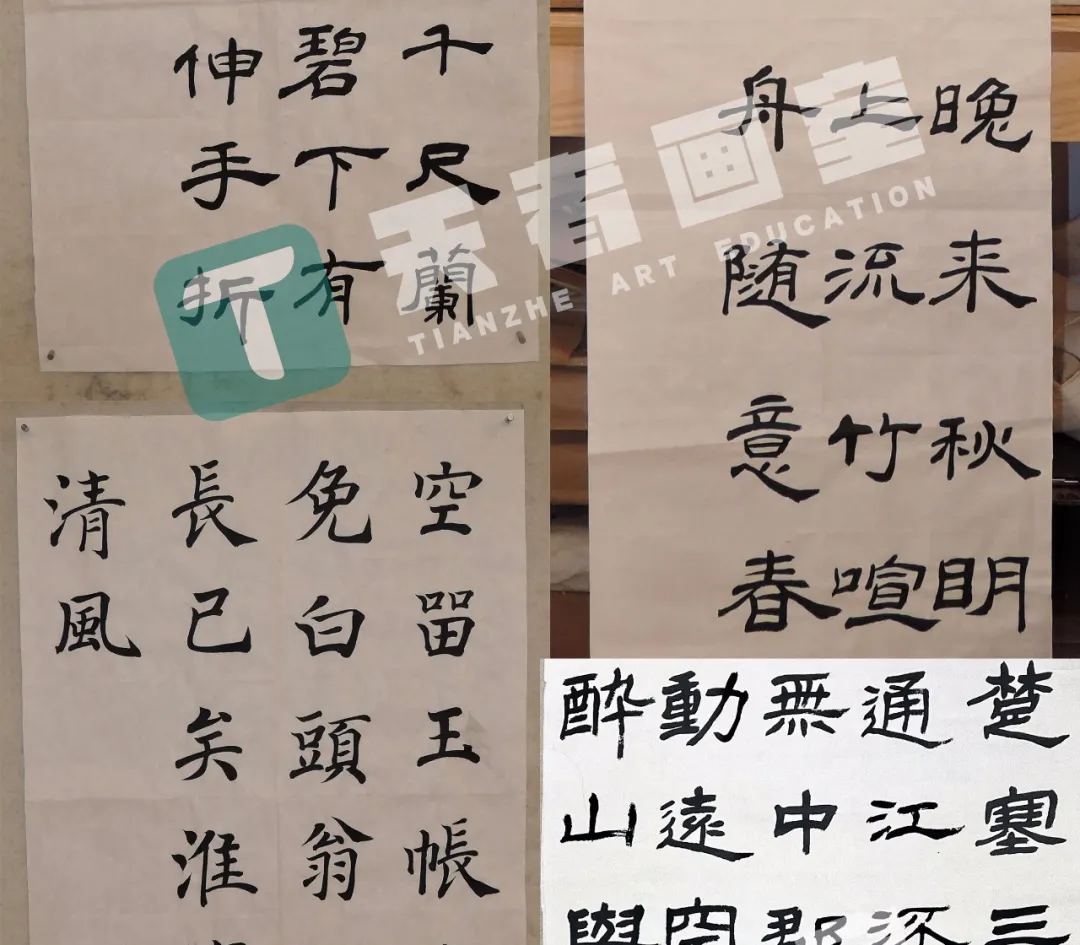 千尺蘭
碧下有
伸手折
天者画室
TIANZHE ART EDUCATION
晚来秋明
上流竹喧
舟随意春
空留玉帳
免白頭翁
長已矣淮
清風
楚塞三
通江
無中郡
動遠空
醉山與